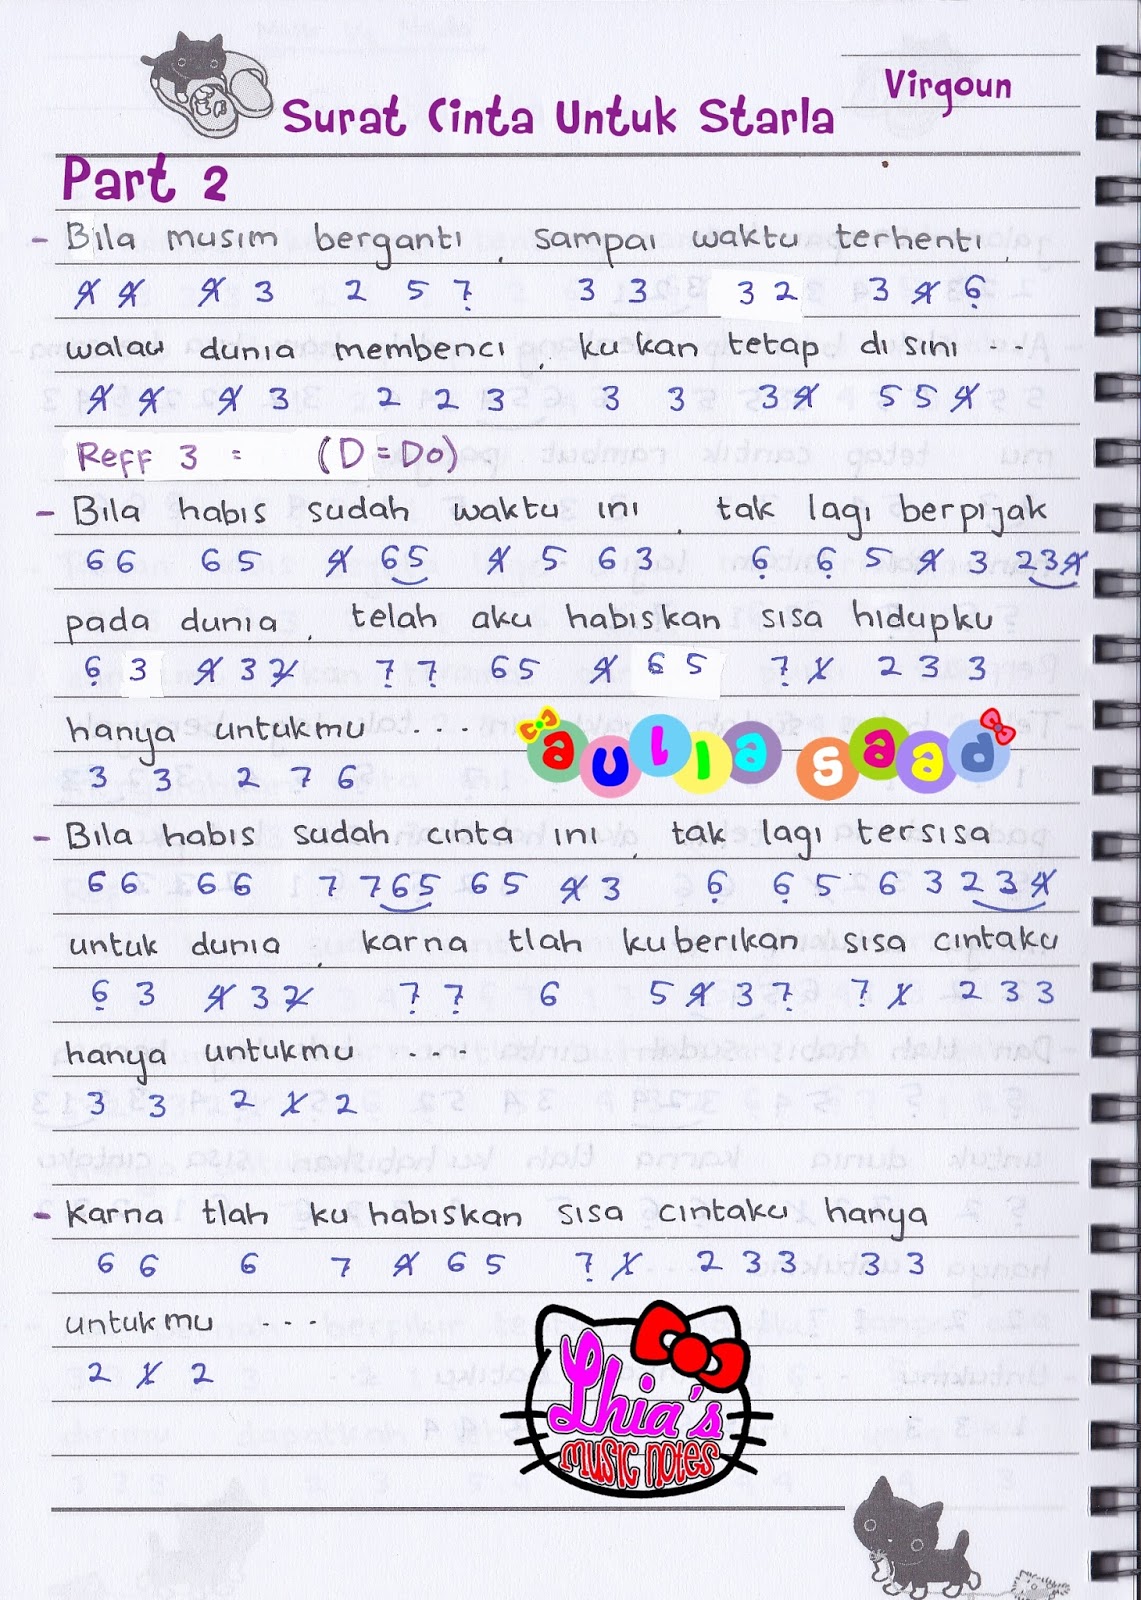 Virgoun
Surat Cinta Untuk Starla
Part 2
- Bila musim berganti, sampai waktu terhenti,
4̸ 4̸ 4̸ 3 2 5 7̣ 3 3 3 2 3 4̸ 6̣
walau dunia membenci, ku kan tetap disini ...
4̸ 4̸ 4̸ 3 2 2 3 3 3 3 4̸ 5 5 4̸
Reff 3 = (D = Do)
- Bila habis sudah waktu ini, tak lagi berpijak
6 6 6 5 4̸ 6 5 4̸ 5 6 3 6̣ 6̣ 5 4̸ 3 2 3 4̸
pada dunia, telah aku habiskan sisa hidupku
6̣ 3 4̸ 3 2̸ 7̣ 7̣ 6 5 4̸ 6 5 7̣ 1̸ 2 3 3
hanya untukmu ....
3 3 2 7 6
aulia saad
- Bila habis sudah cinta ini, tak lagi tersisa
6 6 6 6 7 7 6 5 6 5 4̸ 3 6̣ 6̣ 5 6 3 2 3 4̸
untuk dunia, karna tlah ku berikan sisa cintaku
6̣ 3 4̸ 3 2̸ 7̣ 7̣ 6 5 4̸ 3 7̣ 7̣ 1̸ 2 3 3
hanya untukmu ....
3 3 2 1̸ 2
- Karna tlah ku habiskan sisa cintaku hanya
6 6 6 7 4̸ 6 5 7̣ 1̸ 2 3 3 3 3
untukmu ...
2 1̸ 2
Lhia's
MUSIC NOTES